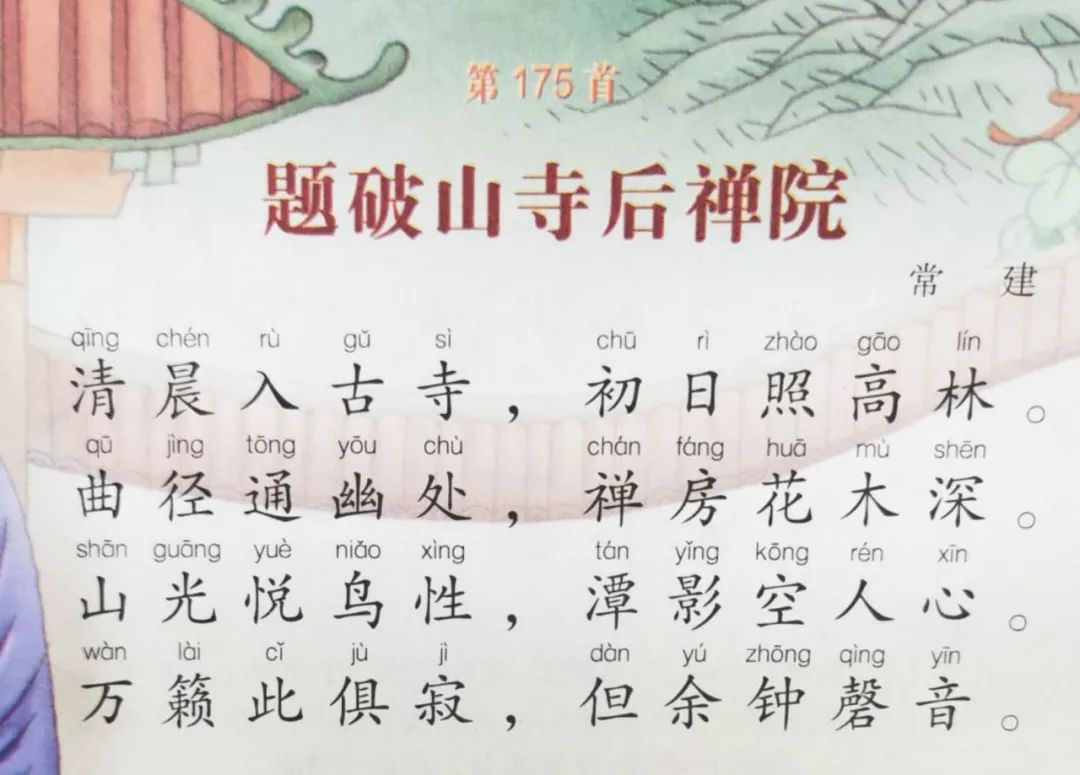 第175首
题破山寺后禅院
常 建
qīng chén rù gǔ sì chū rì zhào gāo lín
清晨入古寺，初日照高林。
qū jìng tōng yōu chù chán fáng huā mù shēn
曲径通幽处，禅房花木深。
shān guāng yuè niǎo xìng tán yǐng kōng rén xīn
山光悦鸟性，潭影空人心。
wàn lài cǐ jù jì dàn yú zhōng qìng yīn
万籁此俱寂，但余钟磬音。